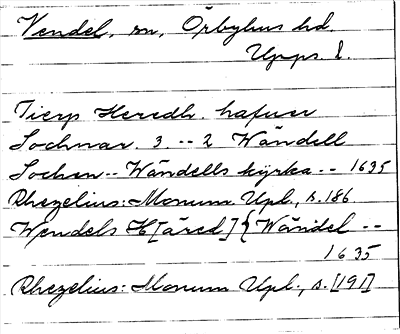 Vendel, sn, Örbyhus hd.
Upps. l.
Tierp Heredh. hafuer
Sochnar. 3. -- 2 Wändell
Sochen -- Wändells kyrka -- 1635
Rhezelius: Monum Upl., s. 186
Wendels H[äred] { Wändel --
1635
Rhezelius: Monum Upl., s. [191]